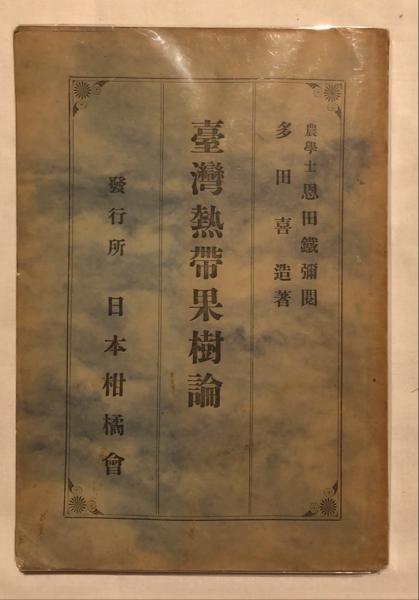 農學士 恩田鐵彌閲
多田喜造著
臺灣熱帶果樹論
發行所 日本柑橘會